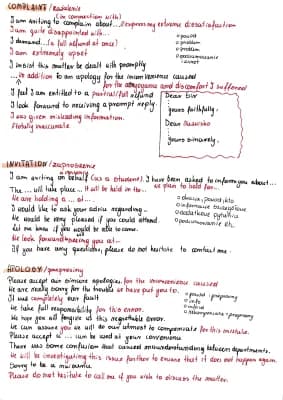 COMPLAINT / zażalenie
(in connection with)
I am writing to complain about... / express my extreme dissatisfaction
I am quite disappointed with...
I demand... (a full refund at once)
I am extremely upset
I insist this matter be dealt with promptly
... in addition to an apology for the inconvenience caused
for the and discomfort I suffered
I feel I am entitled to a partial/full refund
I look forward to receiving a prompt reply.
I was given misleading information.
/totally inaccurate
• powód
• problem
• problem
Dear Sir
yours faithfully.
Dear
yours sincerely.
INVITATION / zaproszenie
I am writing on behalf (as a student). I have been asked to inform you about...
The .... will take place... It will be held in to... We plan to hold for...
We are holding a ... at....
I would like to ask your advice regarding..
We would be very pleased if you could attend.
Let me know if you would be able to come.
We look forward to seeing you at...
If you have any questions, please do not hesitate to contact me
o dodatkowe pytania
APOLOGY / przeprosiny
Please accept our sincere apologies for the inconvenience caused
We are really sorry for the trouble we have put you to.
It was completely our fault
We take full responsibility for this error.
We hope you will forgive us this regrettable error.
We can assure you we will do our utmost to compensate for this mistake.
Please accept a ... can be used at your convenience
There was some confusion that caused misunderstanding between departments.
We will be investigating this issue further to ensure that it does not happen again.
Sorry to be a nuisance
Please do not hesitate to call me if you wish to discuss the matter.